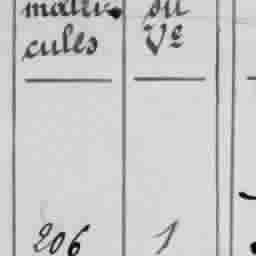 matri- du
cules Ve
206 1